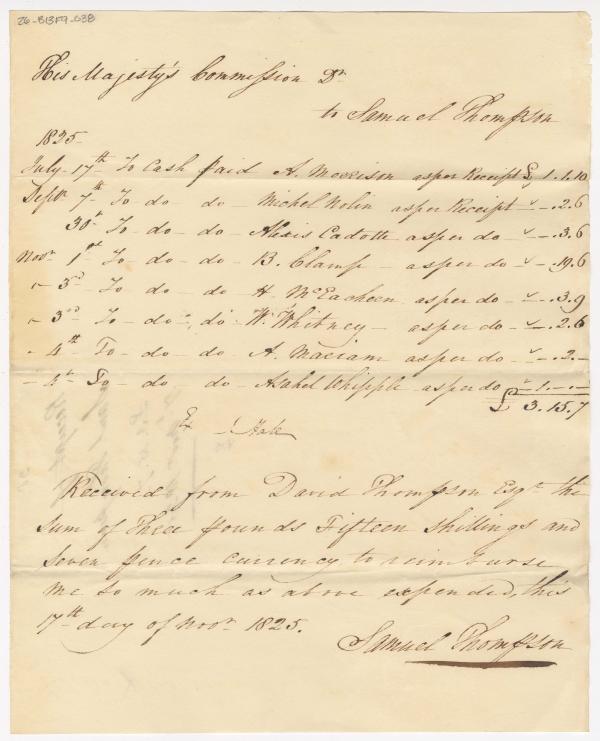 26-B13F9-038
His Majesty's Commission Dr
to Samuel Thompson
1825
July 17th To Cash paid A. Morrison as per Receipt £ 1.1.10
Septr 7th To do do Michel Nolin as per Receipt " - .2.6
30th To do do Alexis Cadotte as per do " - .3.6
Novr 1st To do do B. Clamp as per do " - .19.6
" 3rd To do do H. McEachern as per do " - .3.9
" 3rd To do do W. Whitney as per do " - .2.6
" 4th To do do A. as per do " - .2.-
" 4th To do do Asahel Whipple as per do " 1.-.-
£ 3.15.7
Received from David Thompson Esqr the
sum of Three pounds Fifteen shillings and
seven pence currency to reimburse
me so much as above expended, this
17th day of Novr 1825.
Samuel Thompson